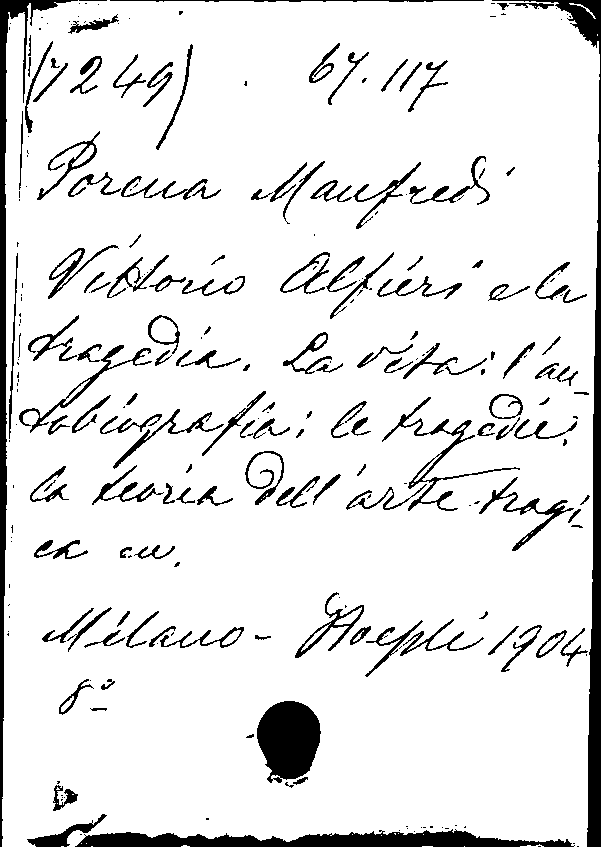 (7249) . 67.117
Porena Manfredi
Vittorio Alfieri e la
tragedia. La vita: l'au-
tobiografia: le tragedie:
la teoria dell'arte tragi-
ca ecc.
Milano - Hoepli 1904
8º